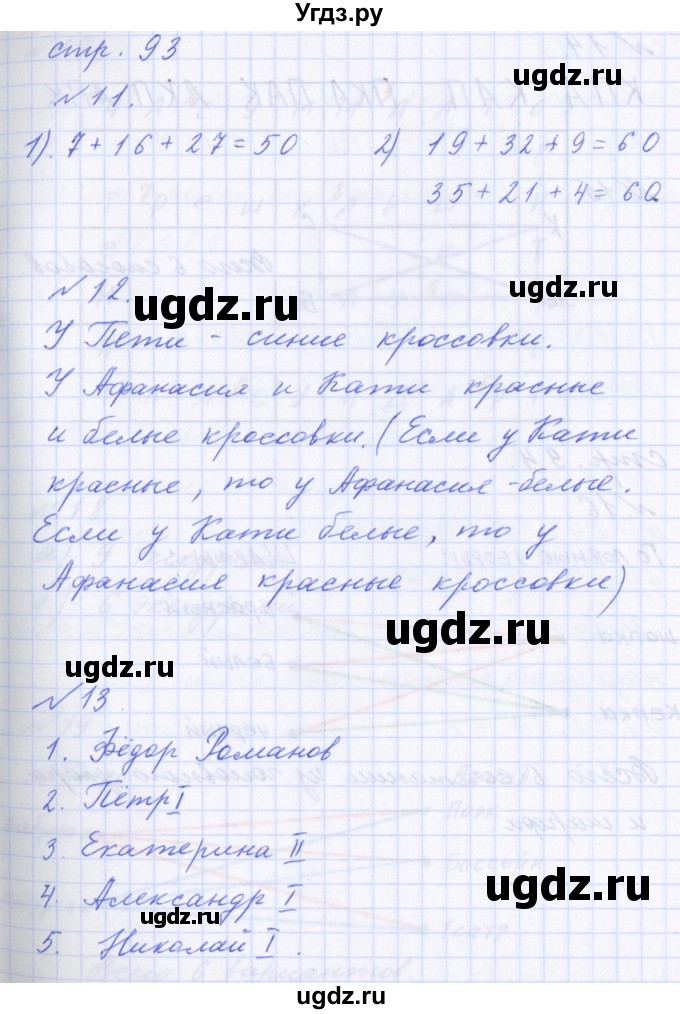 Угдз.ру
стр. 93
ugdz.ru
№11.
1). 7+16+27=50
2) 19+32+9=60
35+21+4=60
ugdz.ru
№12.
ugdz.ru
ugdz.ru
У Пети - синие кроссовки.
У Афанасия и Кати красные
и белые кроссовки. (Если у Кати
красные, то у Афанасия - белые.
Если у Кати белые, то у
Афанасия красные кроссовки)
ugdz.ru
ugdz.ru
№13.
1. Фёдор Романов
2. Пётр I
ugdz.ru
3. Екатерина II
4. Александр I
ugdz.ru
ugdz.ru
5. Николай I.
ugdz.ru